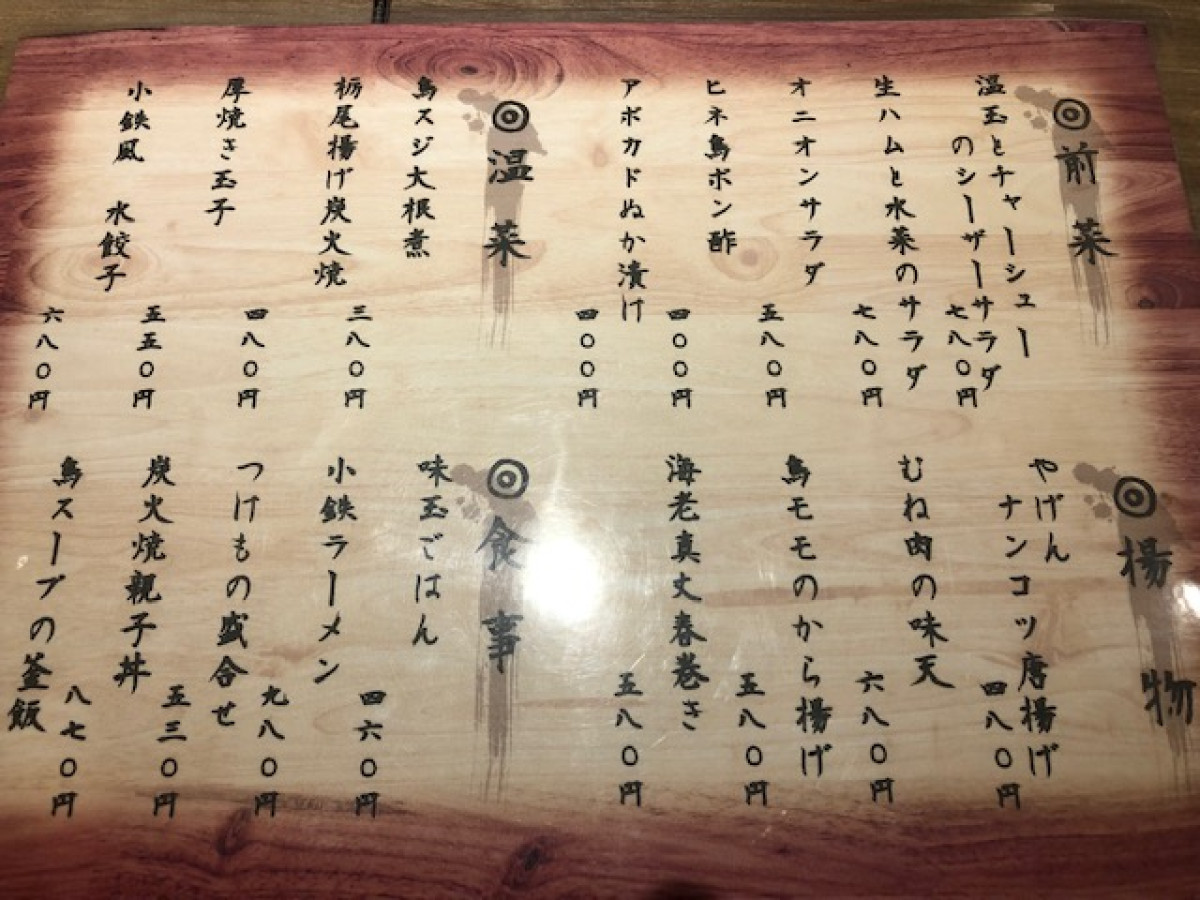 ◎前菜
温玉とチャーシュー
のシーザーサラダ
七八〇円
生ハムと水菜のサラダ
七八〇円
オニオンサラダ
五八〇円
ヒネ鳥ポン酢
四〇〇円
アボカドぬか漬け
四〇〇円
◎温菜
鳥スジ大根煮
三八〇円
栃尾揚げ炭火焼
四八〇円
厚焼き玉子
五五〇円
小鉄風 水餃子
六八〇円
◎揚物
やげん
ナンコツ唐揚げ
四八〇円
むね肉の味天
六八〇円
鳥モモのから揚げ
五八〇円
海老真丈春巻き
五八〇円
◎食事
味玉ごはん
四六〇円
小鉄ラーメン
九八〇円
つけもの盛合せ
五三〇円
炭火焼親子丼
八七〇円
鳥スープの釜飯